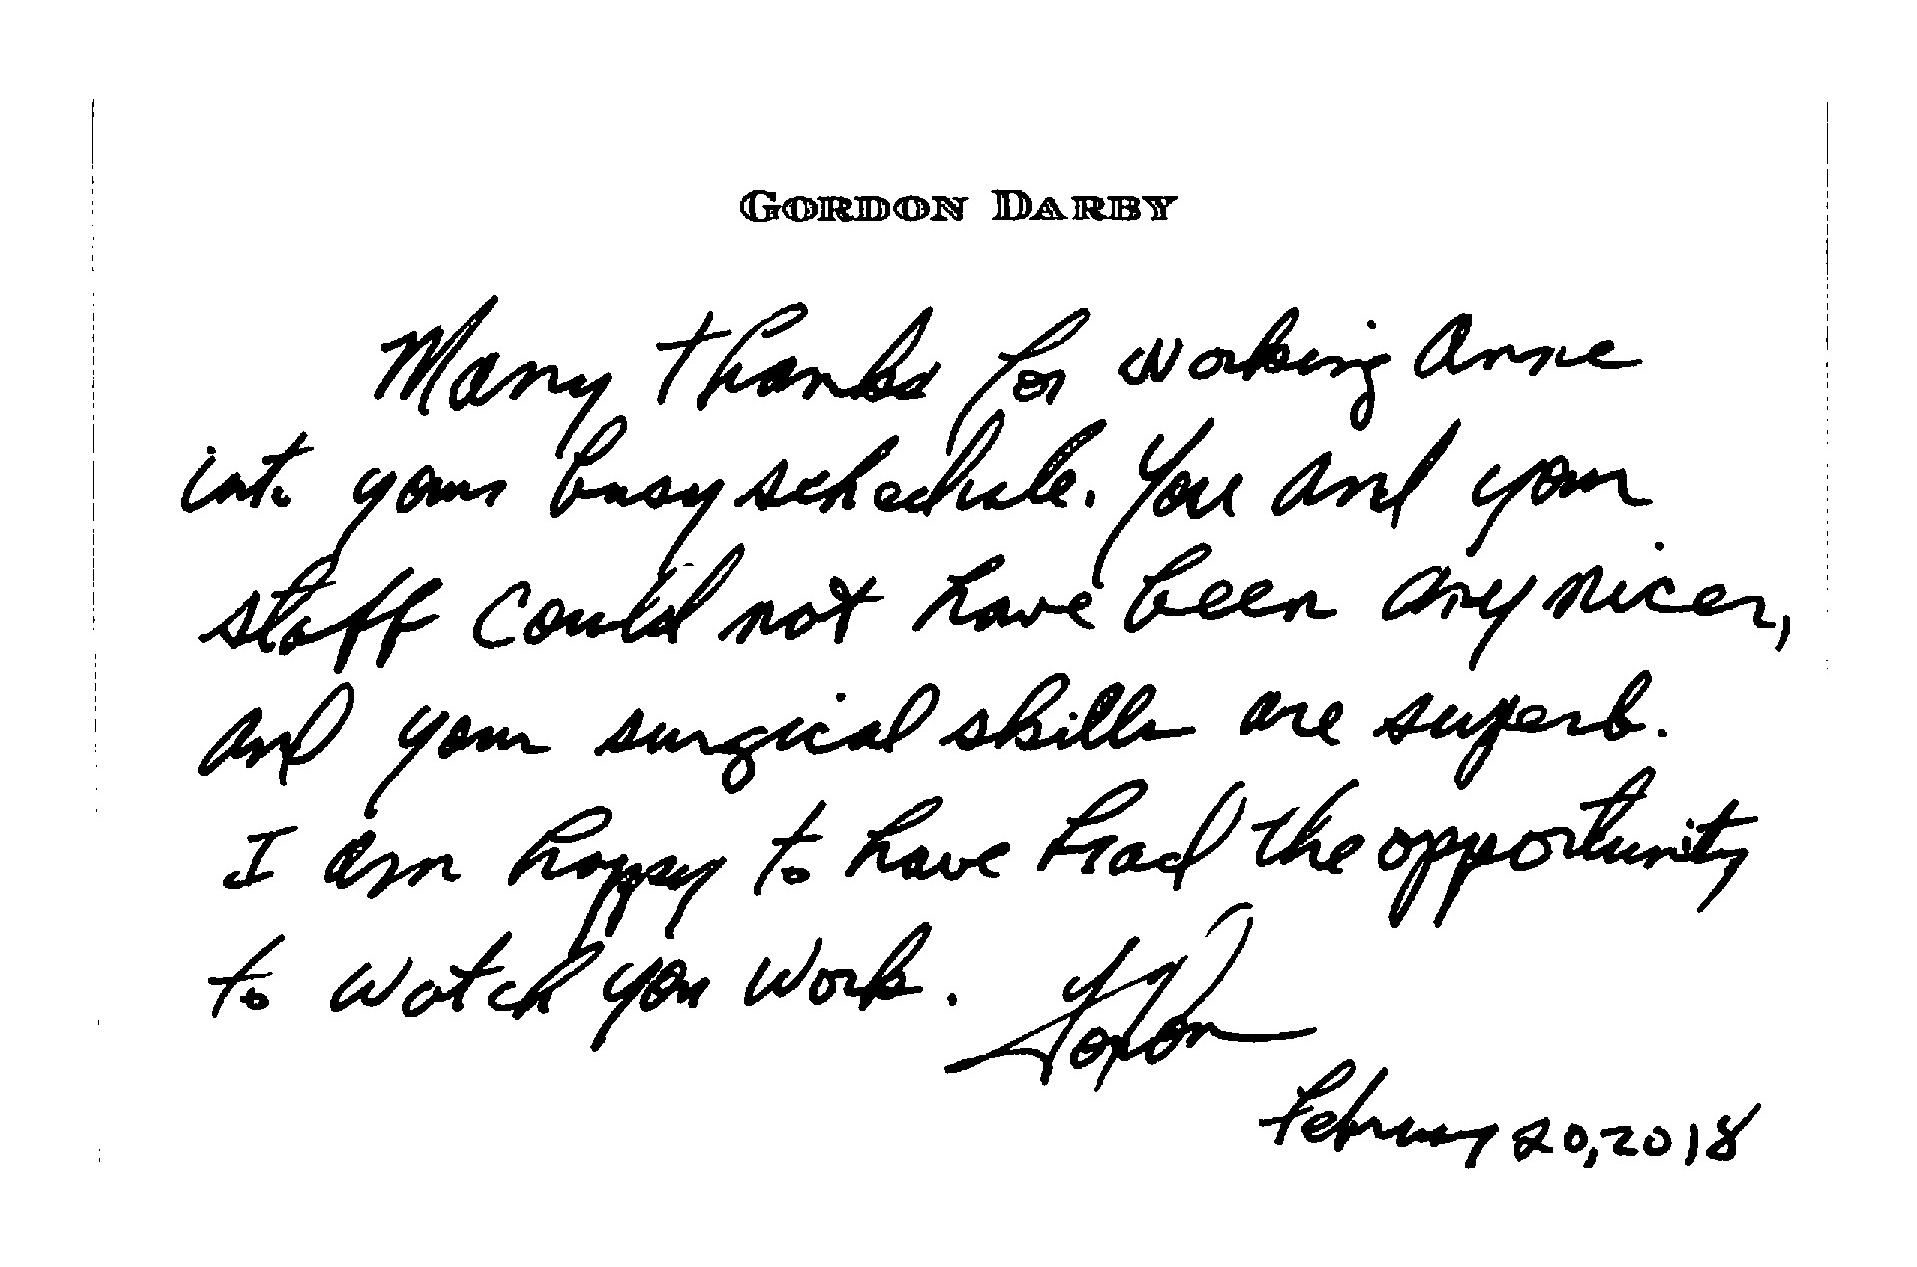 GORDON DARBY
Many thanks for working Anne
into your busy schedule. You and your
staff could not have been any nicer,
and your surgical skills are superb.
I am happy to have had the opportunity
to watch you work.
February 20, 2018